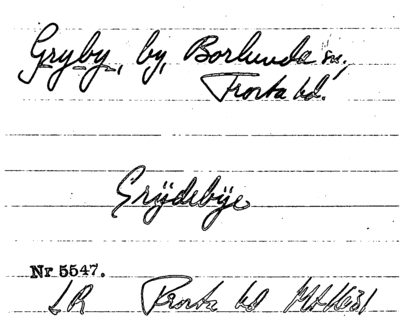 Gryby, by, Borlunda sn,
Frosta hd.
Grÿdebÿe
Nr 5547.
LR Frosta hd